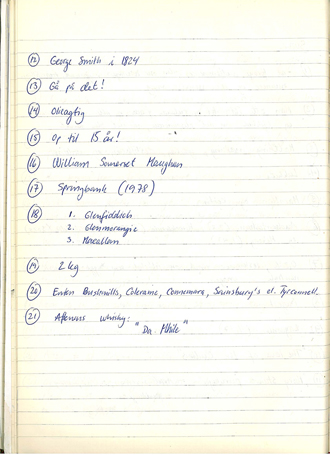 12 George Smith i 1824
13 Gå på det!
14 Olieagtig
15 Op til 15 år!
16 William Somerset Maugham
17 Springbank (1978)
18 1. Glenfiddich
2. Glenmorangie
3. Macallan
19 2 kg
20 Enten Bushmills, Coleraine, Connemara, Sainsbury's el. Tyrconnell.
21 Aftenens whisky:
"Da Mhile"